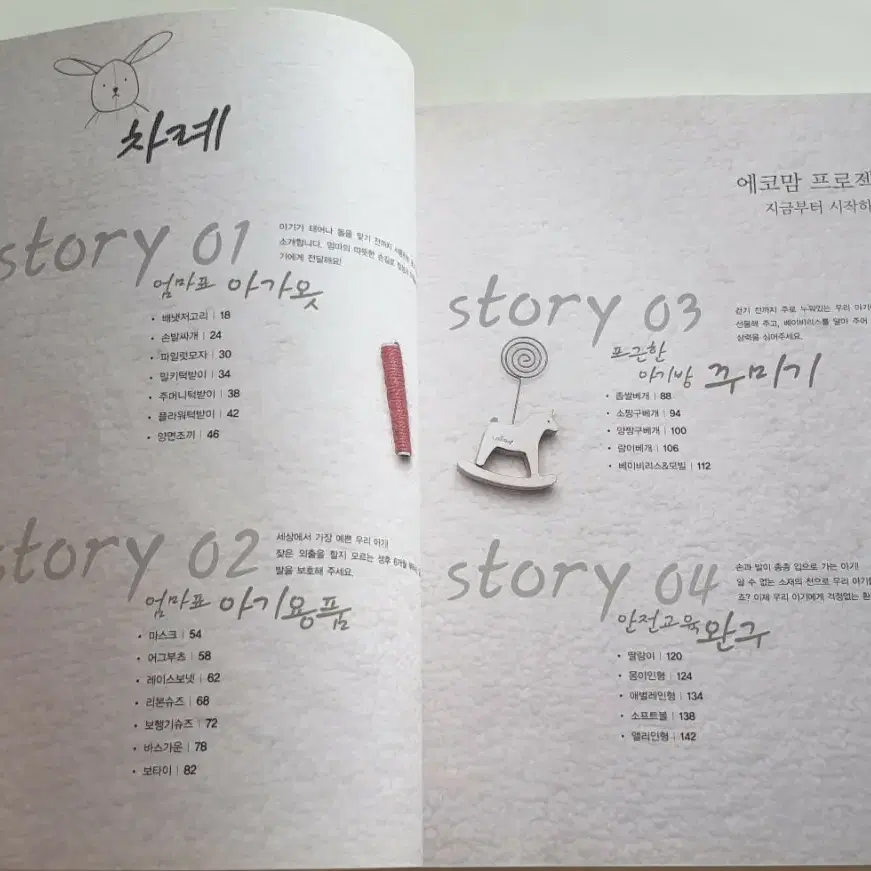 차례
story 01
아기가 태어나 돌을 맞기 전까지
소개합니다. 엄마의 따뜻한 손길로
가에게 전달해요!
엄마표 아가옷
• 배냇저고리 | 18
• 손발싸개 | 24
• 파일럿모자 | 30
• 밀키턱받이 | 34
• 주머니턱받이 | 38
• 플라워턱받이 | 42
• 양면조끼 | 46
story 02
세상에서 가장 예쁜 우리 아기!
잦은 외출을 할지 모르는 생후 6개월
발을 보호해 주세요.
엄마표 아기용품
• 마스크 | 54
• 어그부츠 | 58
• 레이스보넷 | 62
• 리본슈즈 | 68
• 보행기슈즈 | 72
• 바스가운 | 78
• 보타이 | 82
에코맘 프로젝
지금부터 시작하
story 03
걷기 전까지 주로 누워있는 우리 아기
선물해 주고, 베이비리스를 달아 주어
상력을 심어주세요.
포근한
아기방 꾸미기
• 좁쌀베개 | 88
• 소짱구베개 | 94
• 양짱구베개 | 100
• 람이베개 | 106
• 베이비리스&모빌 | 112
story 04
손과 발이 종종 입으로 가는 아기!
알 수 없는 소재의 천으로 우리 아기
죠? 이제 우리 아기에게 걱정없는 환
안전교육 완구
• 딸랑이 | 120
• 몽이인형 | 124
• 애벌레인형 | 134
• 소프트볼 | 138
• 앨리인형 | 142